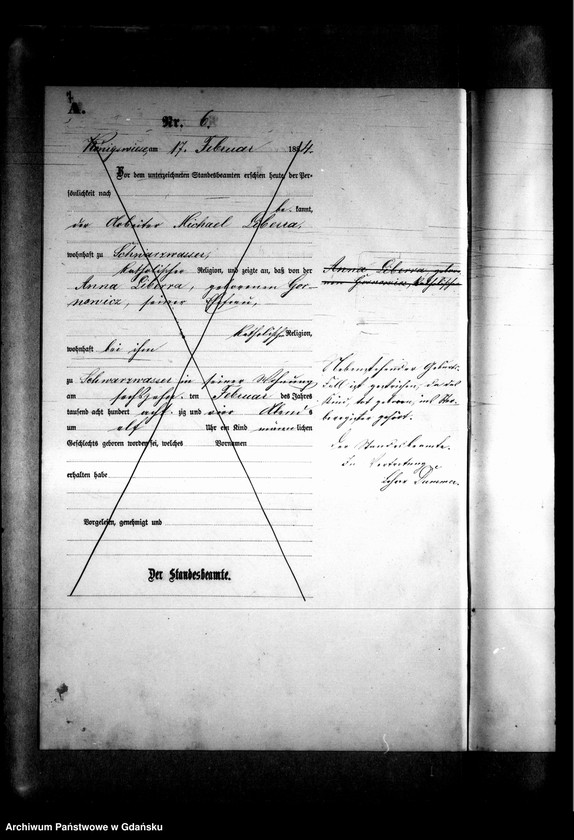 A.
Nr. 6.
Königswiese, am 17. Februar 1884.
Vor dem unterzeichneten Standesbeamten erschien heute, der Per-
sönlichkeit nach
be kannt,
der Arbeiter Michael Liberra,
wohnhaft zu Schwarzwasser,
katholischer Religion, und zeigte an, daß von der
Anna Liberra, geborenen Gor-
nowicz, seiner Ehefrau,
katholisch. Religion,
wohnhaft bei ihm
zu Schwarzwasser in seiner Wohnung,
am sechzehn ten Februar des Jahres
tausend acht hundert acht zig und vier Abends
um elf Uhr ein Kind männ lichen
Geschlechts geboren worden sei, welches Vornamen
erhalten habe
Vorgelesen, genehmigt und
Der Standesbeamte.
Anna Liberra, gebor-
nen Gornowicz, katholischer
Nebenstehender Geburts-
fall ist gestrichen, da das
Kind, tot geboren, ins Ster-
beregister gehört.
Der Standesbeamte.
In Vertretung
Lehrer
Archiwum Państwowe w Gdańsku